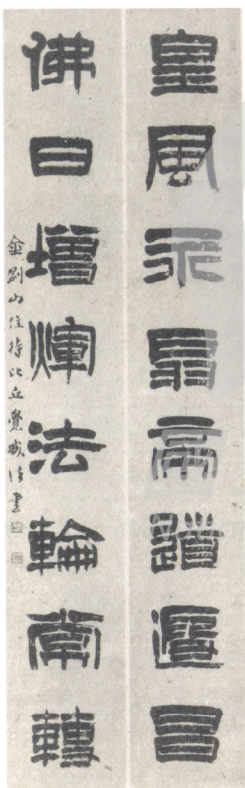 皇風永扇帝道遐昌
佛日增煇法輪常轉
金剛山住持比丘覺城書